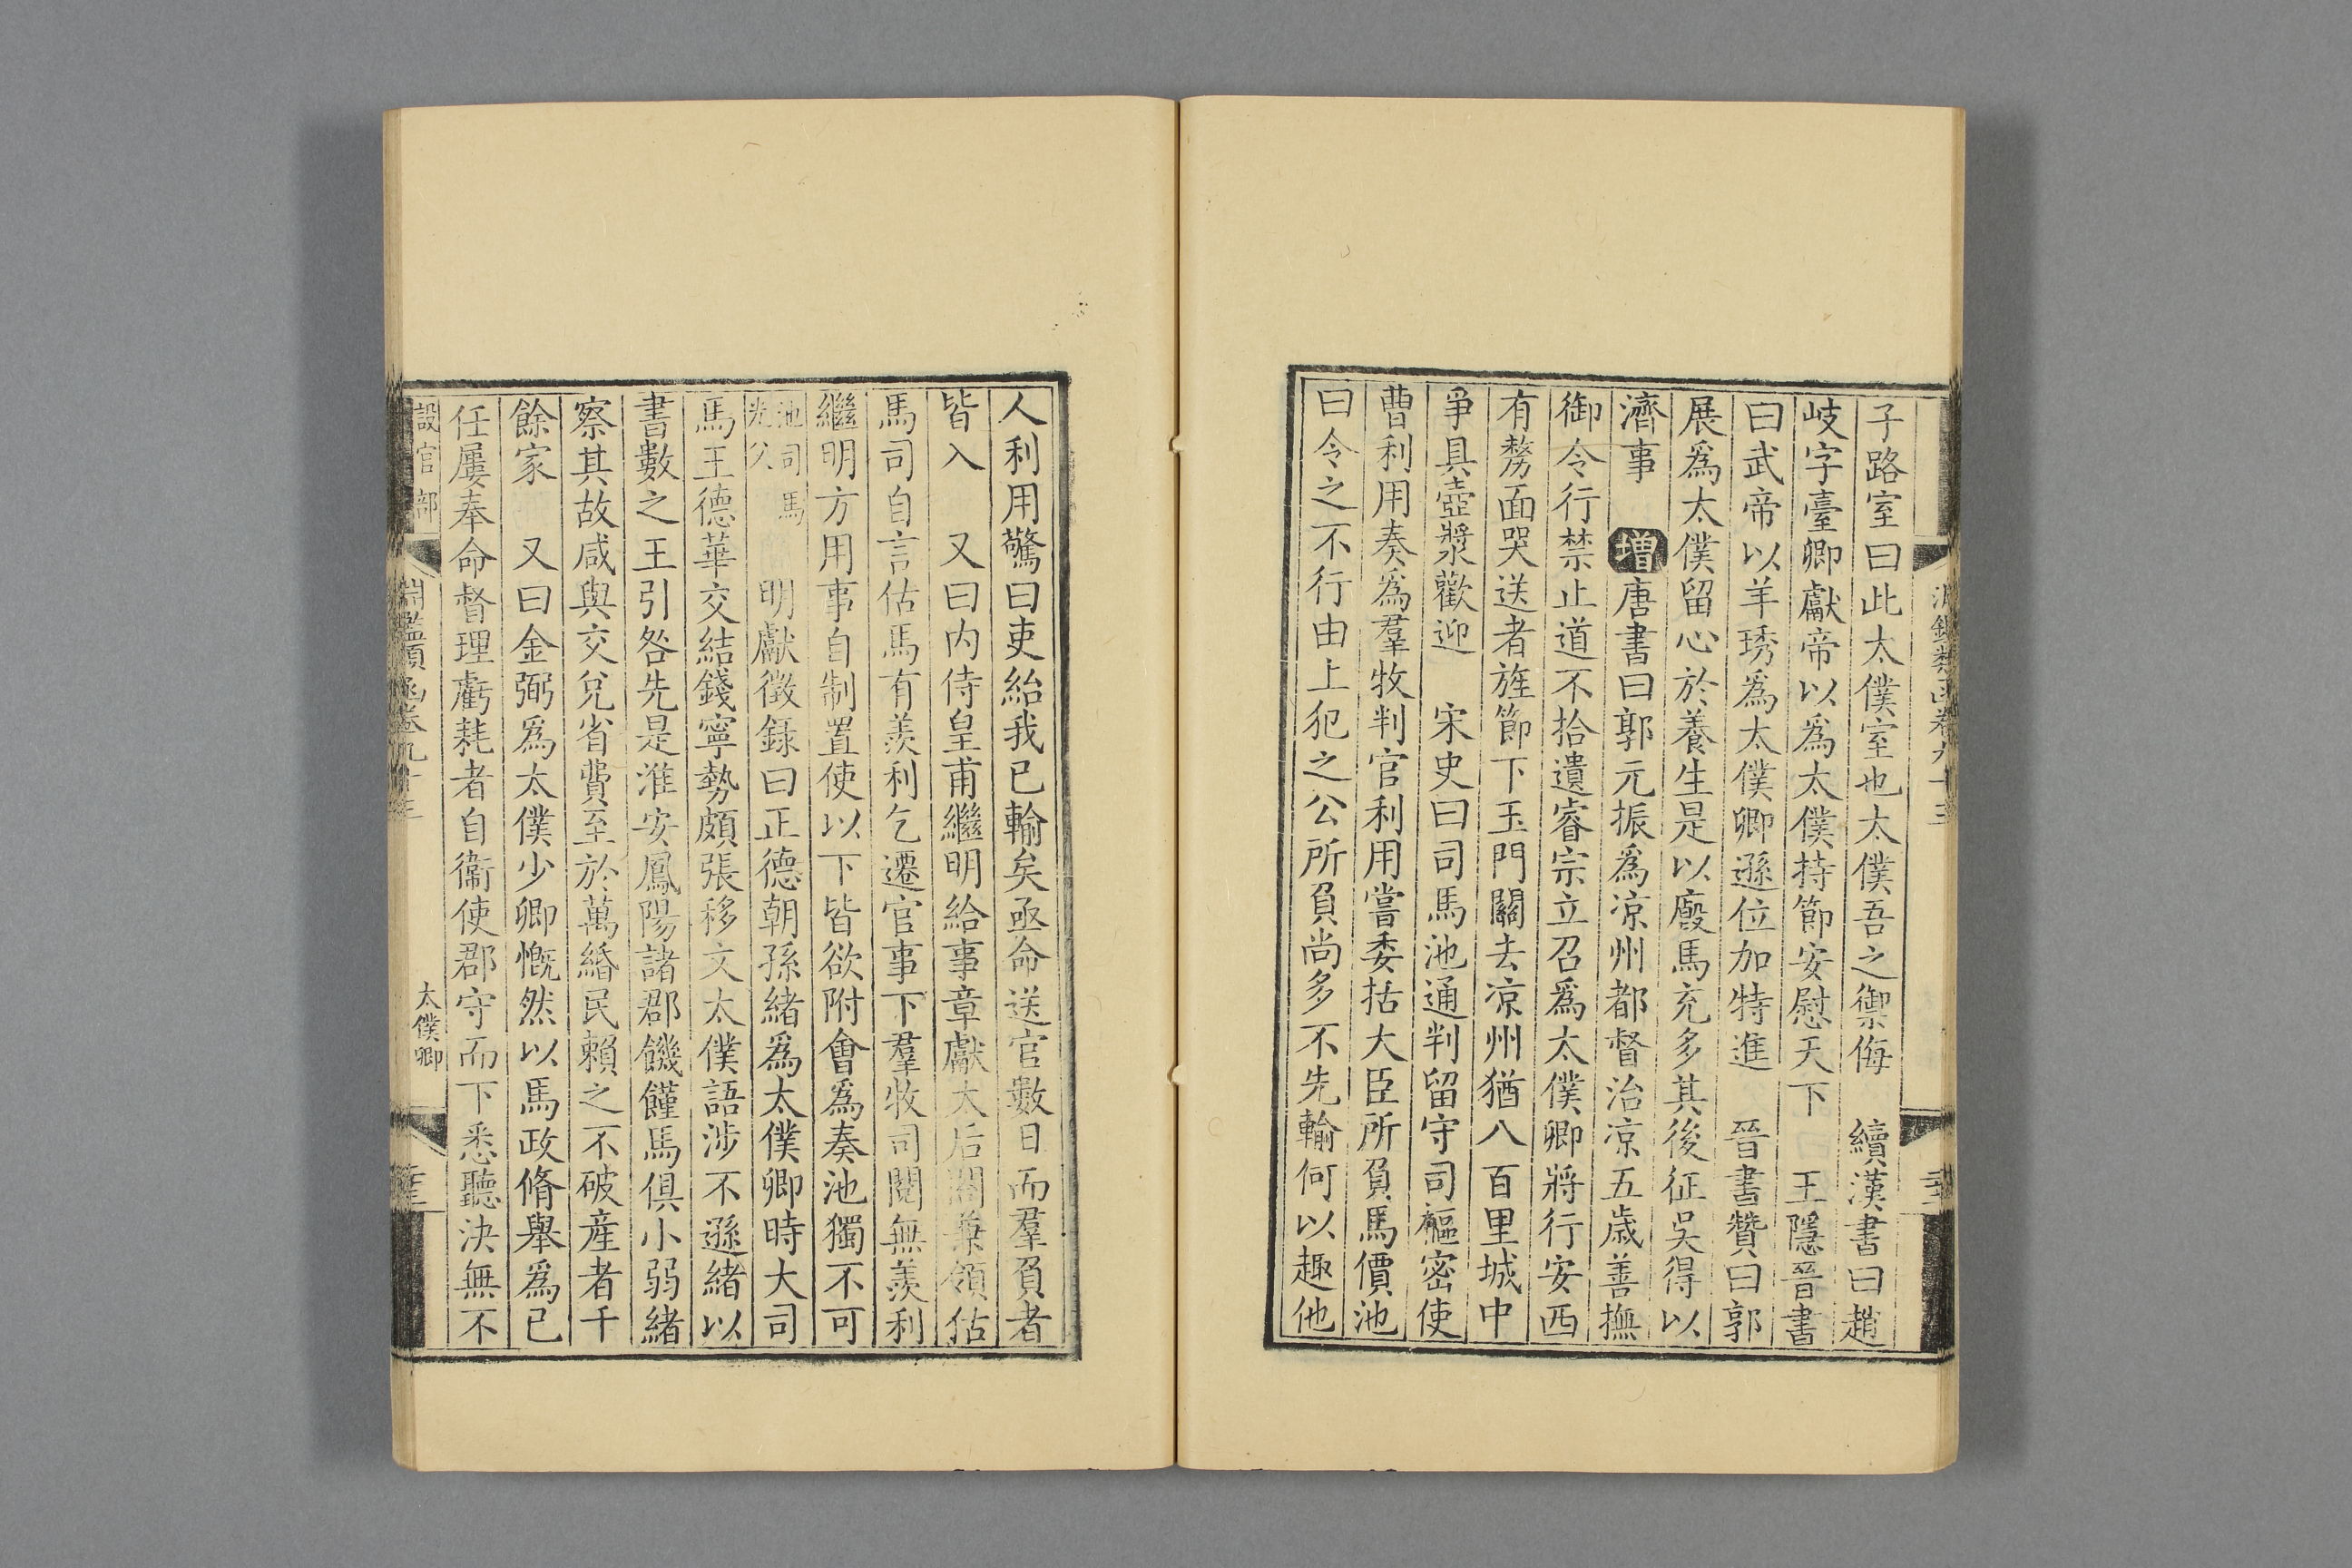 子路室曰此太僕室也太僕吾之禦侮　續漢書曰趙
岐字臺卿獻帝以爲太僕持節安慰天下　王隱晉書
曰武帝以羊琇爲太僕卿遜位加特進　晉書贊曰郭
展爲太僕留心於養生是以廄馬充多其後征吳得以
濟事　增唐書曰郭元振爲凉州都督治凉五歲善撫
御令行禁止道不拾遺睿宗立召爲太僕卿將行安西
有剺面哭送者旌節下玉門關去凉州猶八百里城中
爭具壺漿歡迎　宋史曰司馬池通判留守司樞密使
曹利用奏爲羣牧判官利用嘗委括大臣所負馬價池
曰令之不行由上犯之公所負尚多不先輸何以趣他
人利用驚曰吏紿我已輸矣亟命送官數日而羣負者
皆入　又曰内侍皇甫繼明給事章獻太后閤兼領估
馬司自言估馬有羨利乞遷官事下羣牧司閱無羨利
繼明方用事自制置使以下皆欲附會爲奏池獨不可
池司馬光父　明獻徵録曰正德朝孫緒爲太僕卿時大司
馬王德華交結錢寧勢頗張移文太僕語涉不遜緒以
書數之王引咎先是淮安鳳陽諸郡饑饉馬俱小弱緒
察其故咸與交兌省費至於萬緡民賴之不破産者千
餘家　又曰金弼爲太僕少卿慨然以馬政脩舉爲已
任屢奉命督理虧耗者自衞使郡守而下悉聽決無不
設官部
淵鑑類函卷九十三
太僕卿